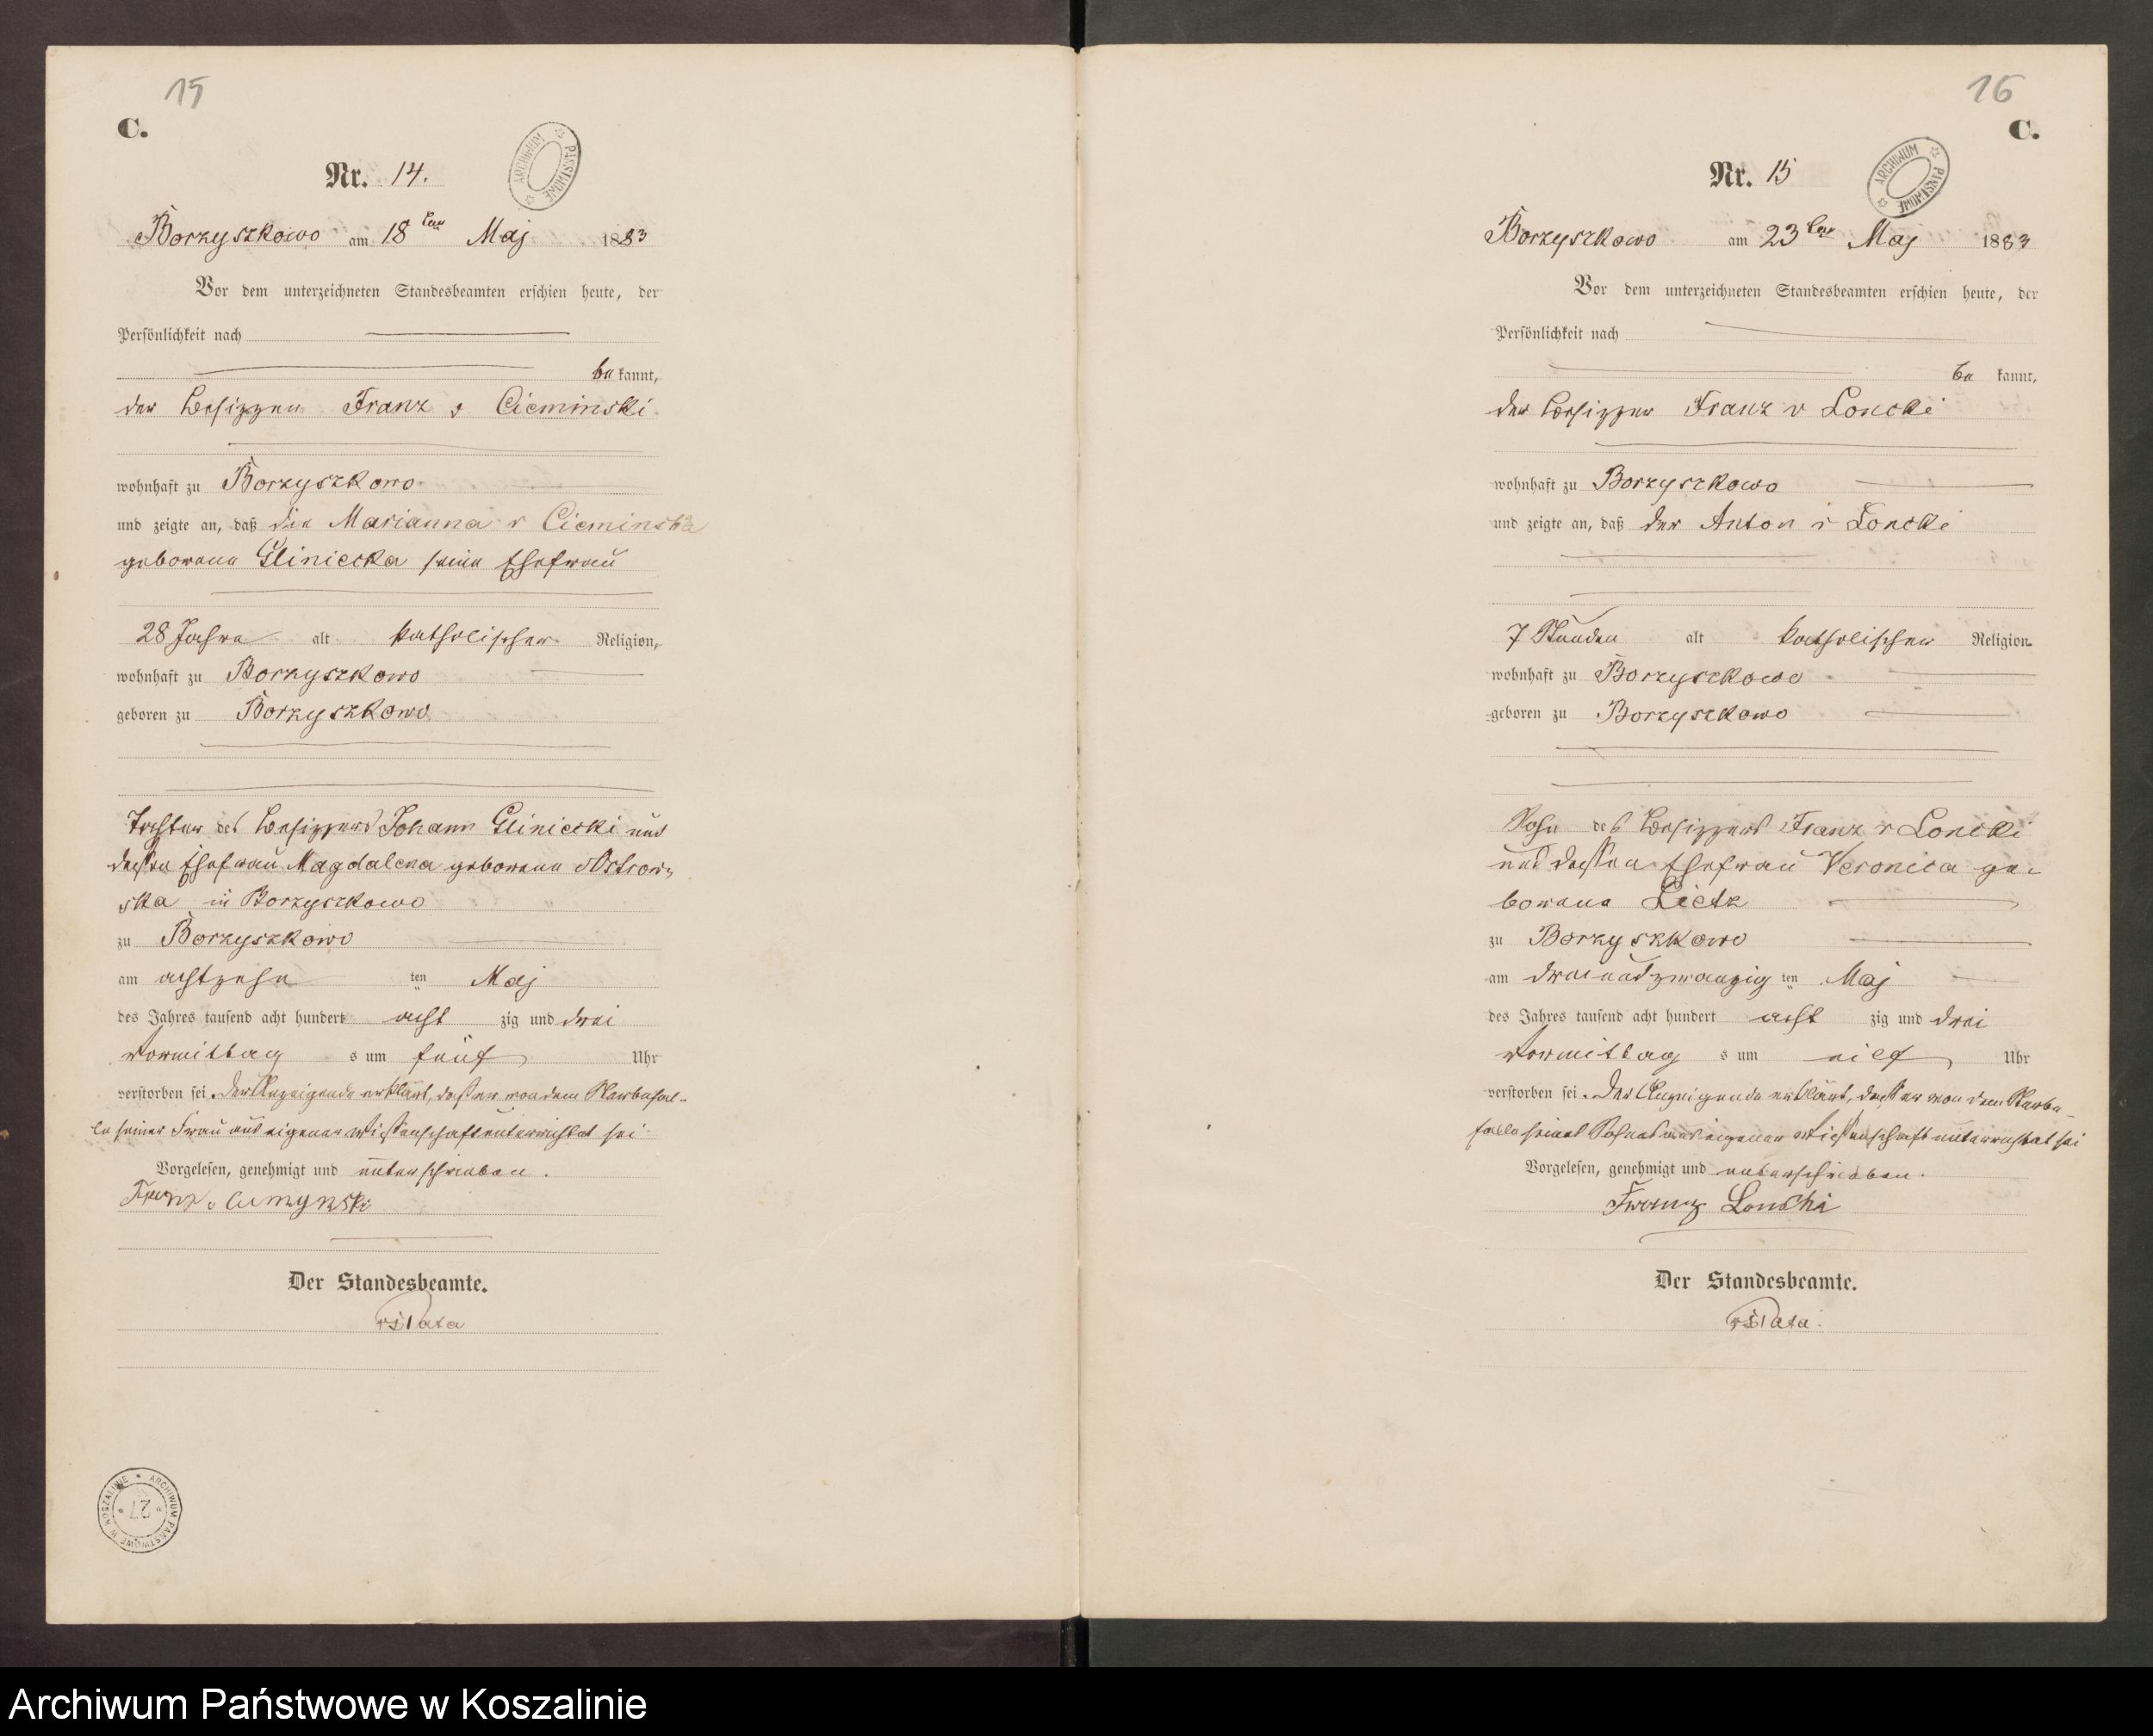 15
C.
ARCHIWUM PAŃSTWOWE
Nr. 14.
Borzyszkowo am 18ten Maj 1883
Vor dem unterzeichneten Standesbeamten erschien heute, der
Persönlichkeit nach
bekannt,
der Besitzer Franz v Cieminski
wohnhaft zu Borzyszkowo
und zeigte an, daß die Marianna v Cieminska
geborene Gliniecka seine Ehefrau
28 Jahre alt katholischer Religion,
wohnhaft zu Borzyszkowo
geboren zu Borzyszkowo
Tochter des Besitzers Johann Gliniecki und
dessen Ehefrau Magdalena geborene Ostrow-
ska in Borzyszkowo
zu Borzyszkowo
am achtzehn ten Maj
des Jahres tausend acht hundert acht zig und drei
Vormittag s um fünf Uhr
verstorben sei. Der Anzeigende erklärt, dass er von dem Sterbefal-
le seiner Frau aus eigener Wissenschaft unterrichtet sei
Vorgelesen, genehmigt und unterschrieben.
Franz v
Der Standesbeamte.
ARCHIWUM PAŃSTWOWE W KOSZALINIE
27
16
C.
ARCHIWUM PAŃSTWOWE
Nr. 15
Borzyszkowo am 23ten Maj 1883
Vor dem unterzeichneten Standesbeamten erschien heute, der
Persönlichkeit nach
be kannt,
der Besitzer Franz v Loncki
wohnhaft zu Borzyszkowo
und zeigte an, daß der Anton v Loncki
7 Stunden alt katholischer Religion
wohnhaft zu Borzyszkowo
geboren zu Borzyszkowo
Sohn des Besitzers Franz v Loncki
und dessen Ehefrau Veronica ge-
borene Lietz
zu Borzyszkowo
am dreiundzwanzig ten Maj
des Jahres tausend acht hundert acht zig und drei
Vormittag s um eilf Uhr
verstorben sei. Der Anzeigende erklärt, dass er von dem Sterbe-
falle seines Sohnes aus eigener Wissenschaft unterrichtet sei
Vorgelesen, genehmigt und unterschrieben.
Franz Lonski
Der Standesbeamte.
Archiwum Państwowe w Koszalinie